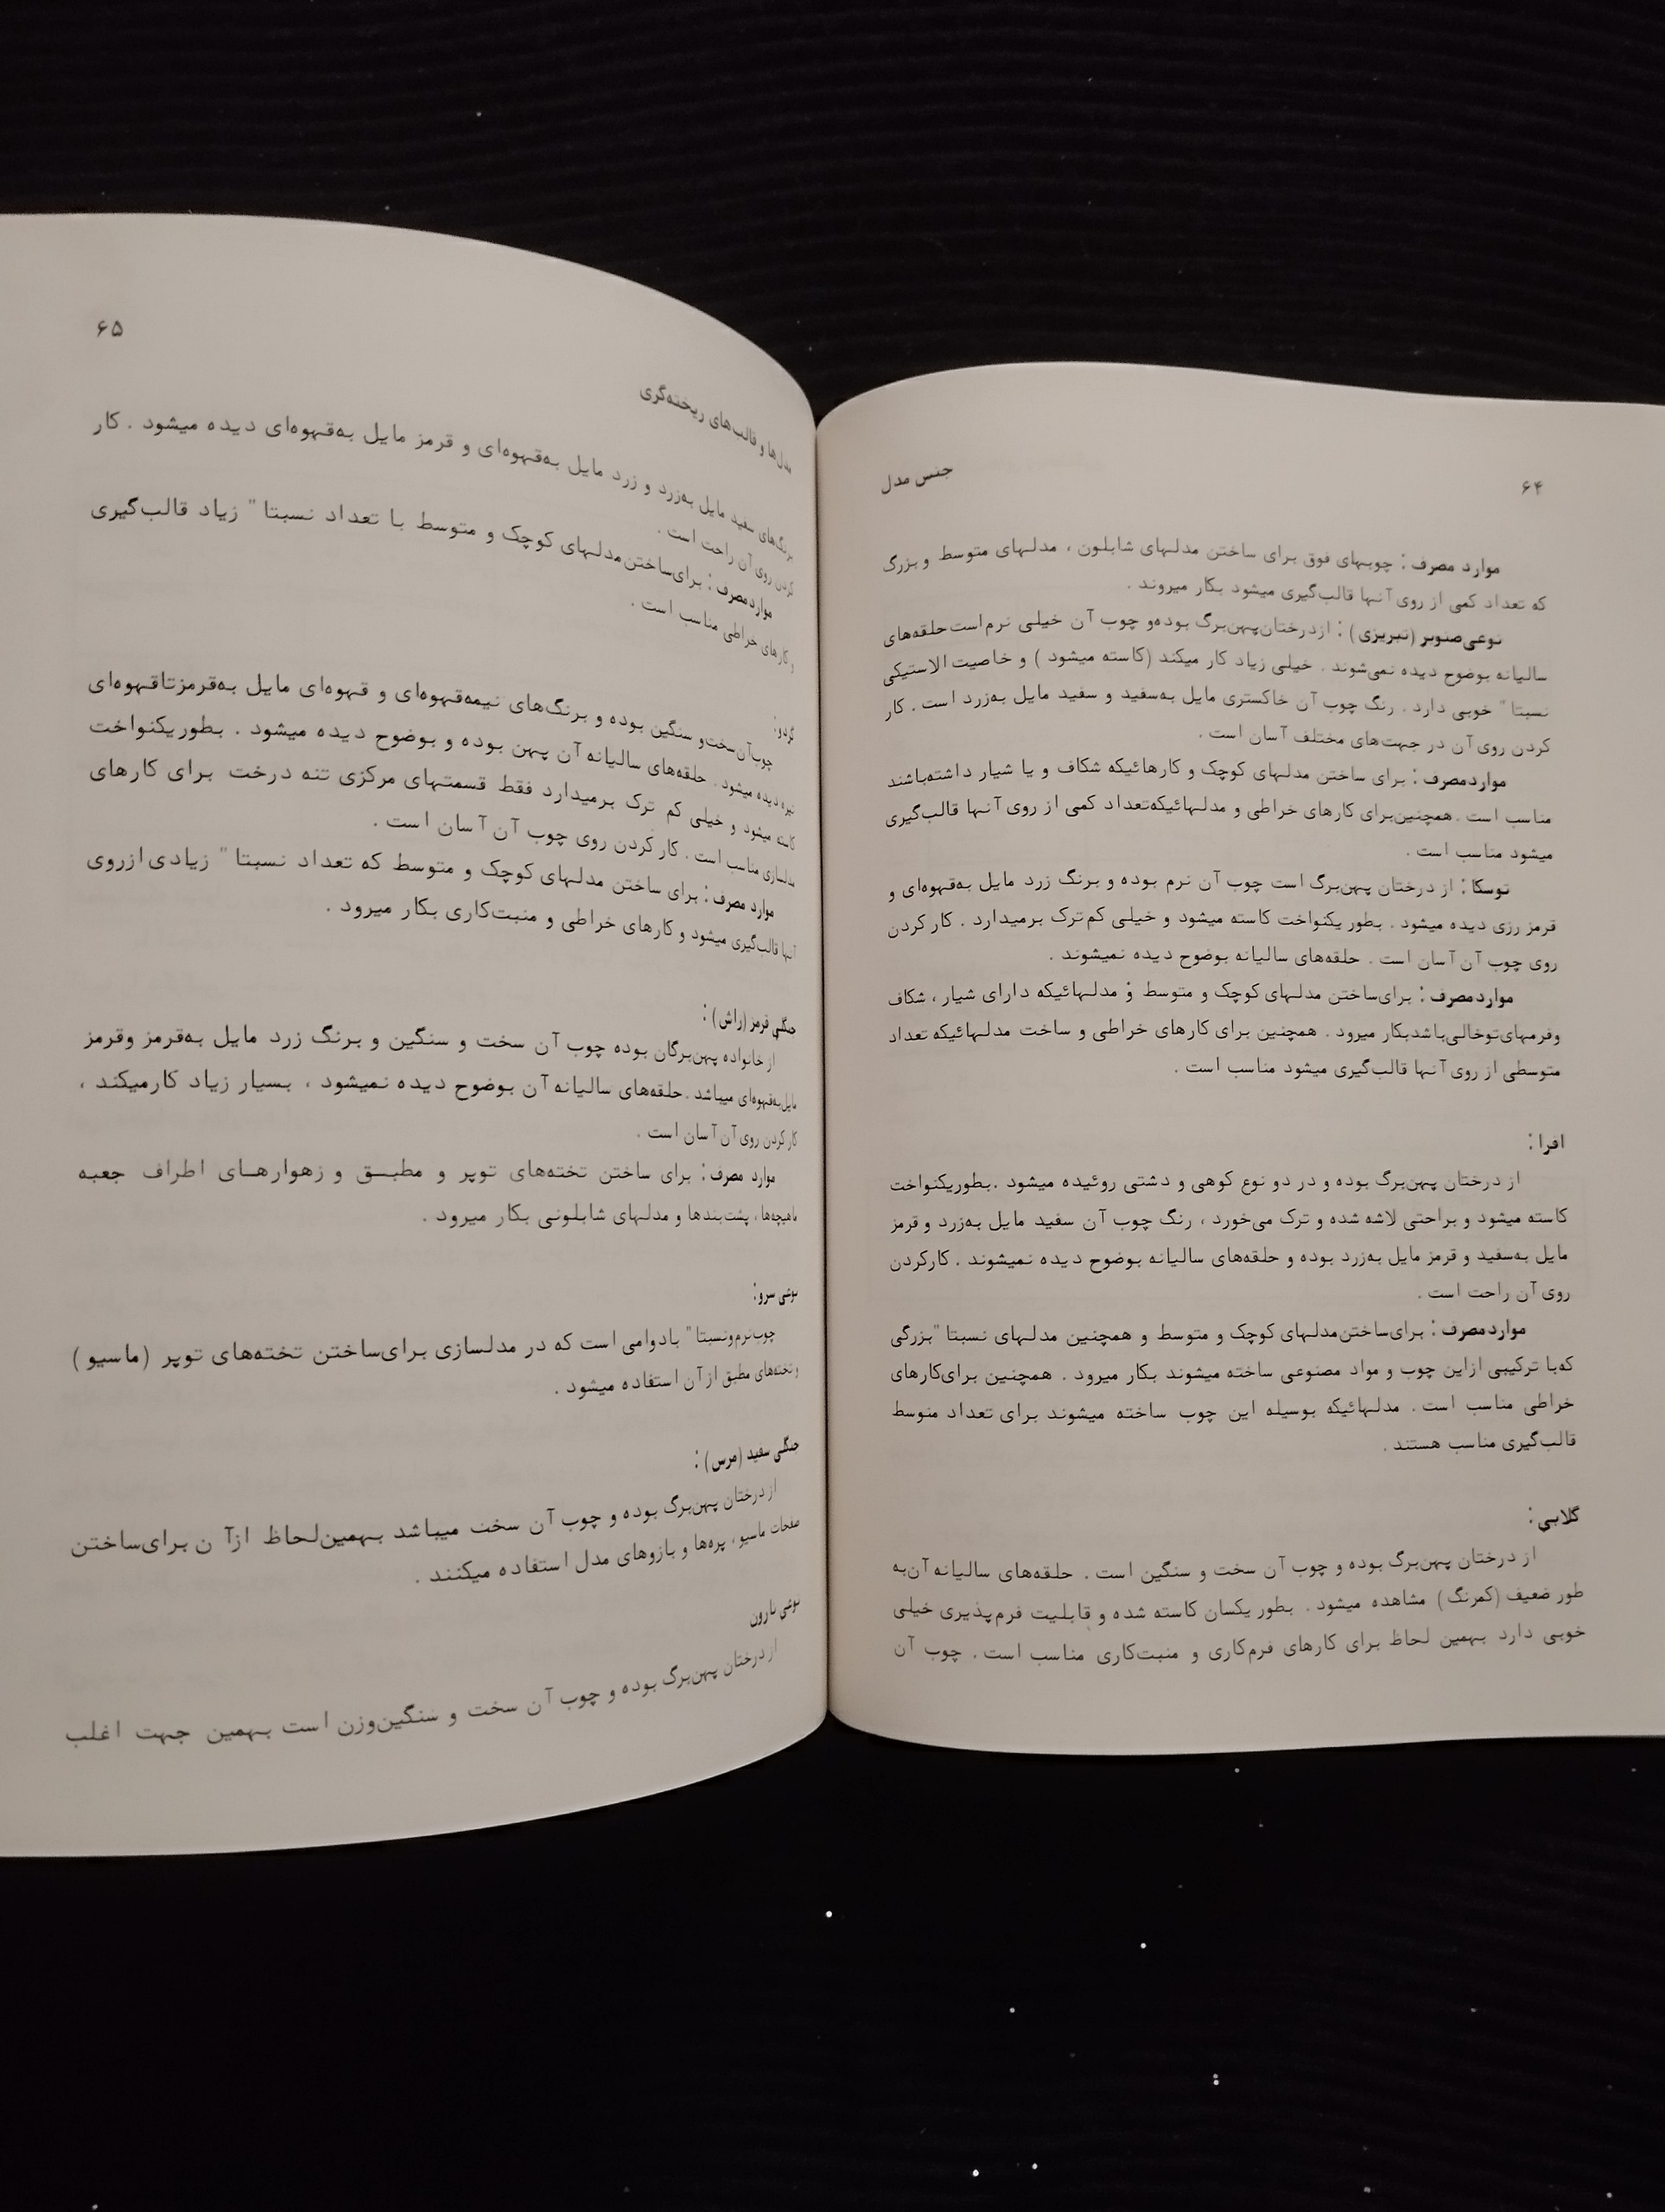 ۶۴
جنس مدل
موارد مصرف : چوبهای فوق برای ساختن مدلهای شابلون ، مدلهای متوسط و بزرگ
که تعداد کمی از روی آنها قالب‌گیری میشود بکار میروند .
نوعی‌صنوبر (تبریزی) : ازدرختان‌پهن‌برگ بوده‌و چوب آن خیلی نرم‌است‌حلقه‌های
سالیانه بوضوح دیده نمی‌شوند . خیلی زیاد کار میکند (کاسته میشود ) و خاصیت الاستیکی
نسبتا " خوبی دارد . رنگ چوب آن خاکستری مایل به‌سفید و سفید مایل به‌زرد است . کار
کردن روی آن در جهت‌های مختلف آسان است .
مواردمصرف : برای ساختن مدلهای کوچک و کارهائیکه شکاف و یا شیار داشته‌باشند
مناسب است . همچنین‌برای کارهای خراطی و مدلهائیکه‌تعداد کمی از روی آنها قالب‌گیری
میشود مناسب است .
توسکا : از درختان پهن‌برگ است چوب آن نرم بوده و برنگ زرد مایل به‌قهوه‌ای و
قرمز رزی دیده میشود . بطور یکنواخت کاسته میشود و خیلی کم‌ترک برمیدارد . کار کردن
روی چوب آن آسان است . حلقه‌های سالیانه بوضوح دیده نمیشوند .
مواردمصرف : برای‌ساختن مدلهای کوچک و متوسط و مدلهائیکه دارای شیار ، شکاف
وفرمهای‌توخالی‌باشدبکار میرود . همچنین برای کارهای خراطی و ساخت مدلهائیکه تعداد
متوسطی از روی آنها قالب‌گیری میشود مناسب است .
افرا :
از درختان پهن‌برگ بوده و در دو نوع کوهی و دشتی روئیده میشود .بطوریکنواخت
کاسته میشود و براحتی لاشه شده و ترک می‌خورد ، رنگ چوب آن سفید مایل به‌زرد و قرمز
مایل به‌سفید و قرمز مایل به‌زرد بوده و حلقه‌های سالیانه بوضوح دیده نمیشوند . کارکردن
روی آن راحت است .
مواردمصرف : برای‌ساختن‌مدلهای کوچک و متوسط و همچنین مدلهای نسبتا "بزرگی
که‌با ترکیبی ازاین چوب و مواد مصنوعی ساخته میشوند بکار میرود . همچنین برای‌کارهای
خراطی مناسب است . مدلهائیکه بوسیله این چوب ساخته میشوند برای تعداد متوسط
قالب‌گیری مناسب هستند .
گلابی :
از درختان پهن‌برگ بوده و چوب آن سخت و سنگین است . حلقه‌های سالیانه آن‌به
طور ضعیف (کمرنگ) مشاهده میشود . بطور یکسان کاسته شده و قابلیت فرم‌پذیری خیلی
خوبی دارد بهمین لحاظ برای کارهای فرم‌کاری و منبت‌کاری مناسب است . چوب آن
۶۵
مدل‌ها و قالب‌های ریخته‌گری
برنگ‌های سفید مایل به‌زرد و زرد مایل به‌قهوه‌ای و قرمز مایل به‌قهوه‌ای دیده میشود . کار
کردن روی آن راحت است .
مواردمصرف : برای‌ساختن مدلهای کوچک و متوسط با تعداد نسبتا " زیاد قالب‌گیری
و کارهای خراطی مناسب است .
گردو:
چوب‌آن‌سخت‌و سنگین بوده و برنگ‌های نیمه‌قهوه‌ای و قهوه‌ای مایل به‌قرمزتاقهوه‌ای
تیره دیده میشود . حلقه‌های سالیانه آن پهن بوده و بوضوح دیده میشود . بطوریکنواخت
کاسته میشود و خیلی کم ترک برمیدارد فقط قسمتهای مرکزی تنه درخت برای کارهای
مدلسازی مناسب است . کار کردن روی چوب آن آسان است .
موارد مصرف : برای ساختن مدلهای کوچک و متوسط که تعداد نسبتا " زیادی ازروی
آنها قالب‌گیری میشود و کارهای خراطی و منبت‌کاری بکار میرود .
جنگلی قرمز (راش) :
از خانواده پهن‌برگان بوده چوب آن سخت و سنگین و برنگ زرد مایل به‌قرمز وقرمز
مایل‌به‌قهوه‌ای میباشد .حلقه‌های سالیانه آن بوضوح دیده نمیشود ، بسیار زیاد کارمیکند ،
کار کردن روی آن آسان است .
موارد مصرف : برای ساختن تخته‌های توپر و مطبـق و زهوارهـای اطراف جعبه
ماهیچه‌ها ، پشت‌بندها و مدلهای شابلونی بکار میرود .
نوعی سرو:
چوب‌نرم‌ونسبتا " بادوامی است که در مدلسازی برای‌ساختن تخته‌های توپر (ماسیو )
و تخته‌های مطبق از آن استفاده میشود .
جنگلی سفید (مرس) :
از درختان پهن‌برگ بوده و چوب آن سخت میباشد بهمین‌لحاظ ازآ ن برای‌ساختن
صفحات ماسیو ، پره‌ها و بازوهای مدل استفاده میکنند .
نوعی نارون
از درختان پهن‌برگ بوده و چوب آن سخت و سنگین‌وزن است بهمین جهت اغلب